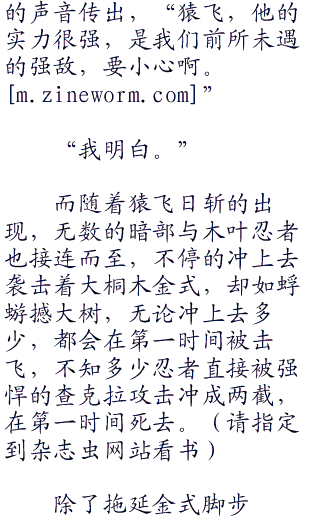 的声音传出，“猿飞，他的
实力很强，是我们前所未遇
的强敌，要小心啊。
[m.zineworm.com]”
“我明白。”
而随着猿飞日斩的出
现，无数的暗部与木叶忍者
也接连而至，不停的冲上去
袭击着大桐木金式，却如蜉
蝣撼大树，无论冲上去多
少，都会在第一时间被击
飞，不知多少忍者直接被强
悍的查克拉攻击冲成两截，
在第一时间死去。（请指定
到杂志虫网站看书）
除了拖延金式脚步